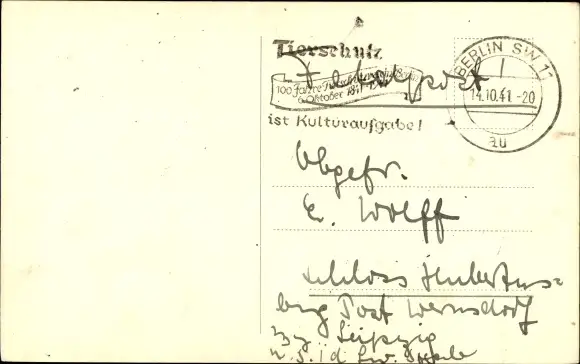 Tierschutz
Feldpost
100 Jahre Tierschutzverein Berlin
6. Oktober 1841-1941
ist Kulturaufgabe!
BERLIN SW 11
14.10.41.-20
au
Obgefr.
E. Wolff
Schloss Hubertus=
burg Post Wermsdorf
Leipzig